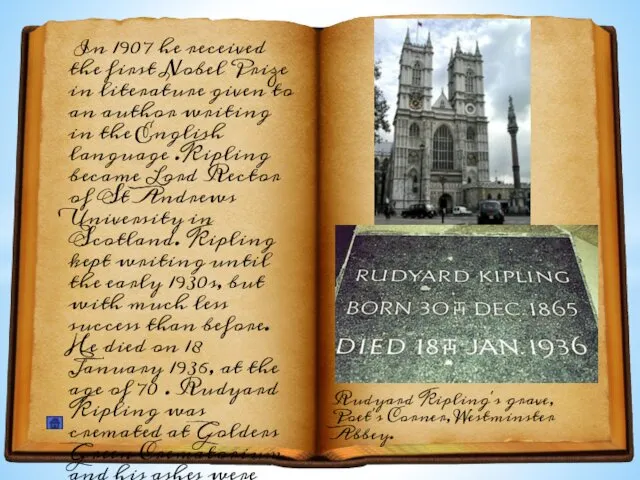 In 1907 he received
the first Nobel Prize
in literature given to
an author writing
in the English
language .Kipling
became Lord Rector
of St Andrews
University in
Scotland. Kipling
kept writing until
the early 1930s, but
with much less
success than before.
He died on 18
January 1936, at the
age of 70 . Rudyard
Kipling was
cremated at Golders
Green Crematorium
and his ashes were
RUDYARD KIPLING
BORN 30TH DEC. 1865
DIED 18TH JAN 1936
Rudyard Kipling's grave,
Poet's Corner, Westminster
Abbey.